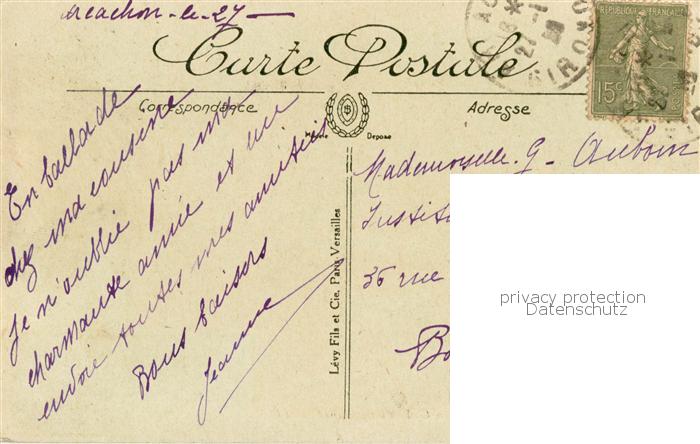 Arcachon-le-27-
Carte Postale
Correspondance
Adresse
RÉPUBLIQUE FRANÇAISE
15c
Marque Déposé
En ballade
chez ma cousine
je n'oublie pas ma
charmante amie et lui
envoie toutes mes amitiés
Bons baisers
Jeanne
Lévy Fils et Cie, Paris Versailles
Mademoiselle. G. Aubouin
Institu
36 rue
Bo
privacy protection
Datenschutz